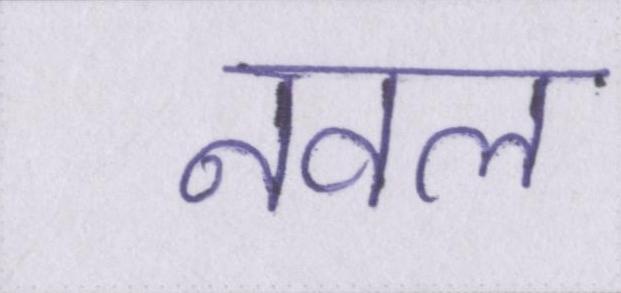 नवल